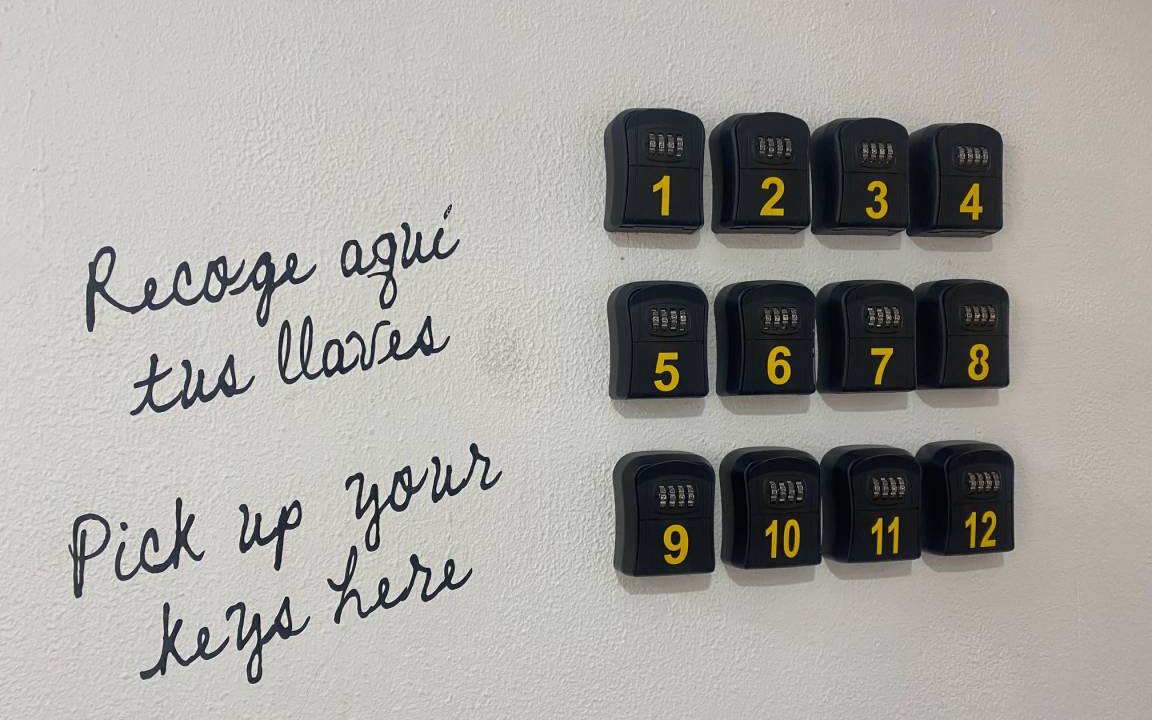 Recoge aquí
tus llaves
Pick up your
keys here
1 2 3 4
5 6 7 8
9 10 11 12